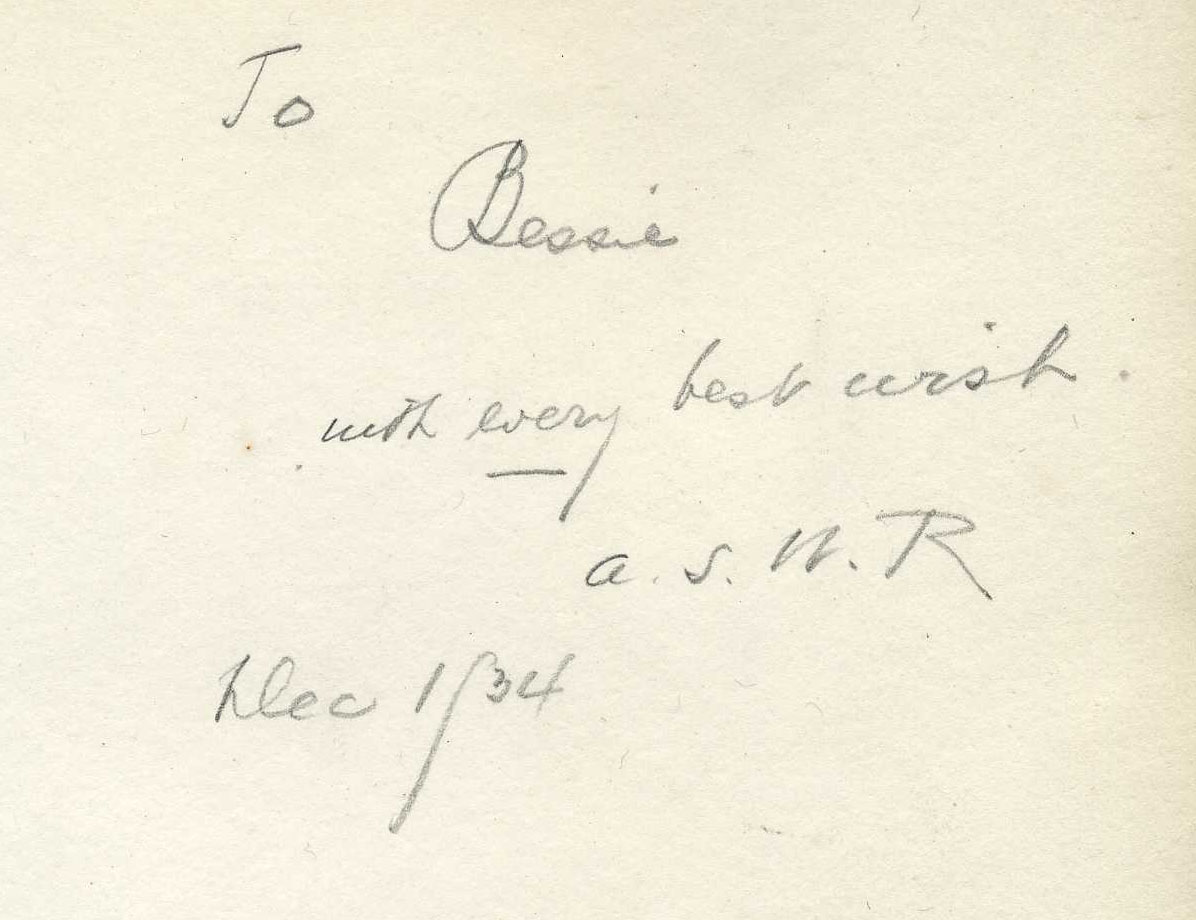 To
Bessie
with every best wish.
a. S. W. R
Dec 1934